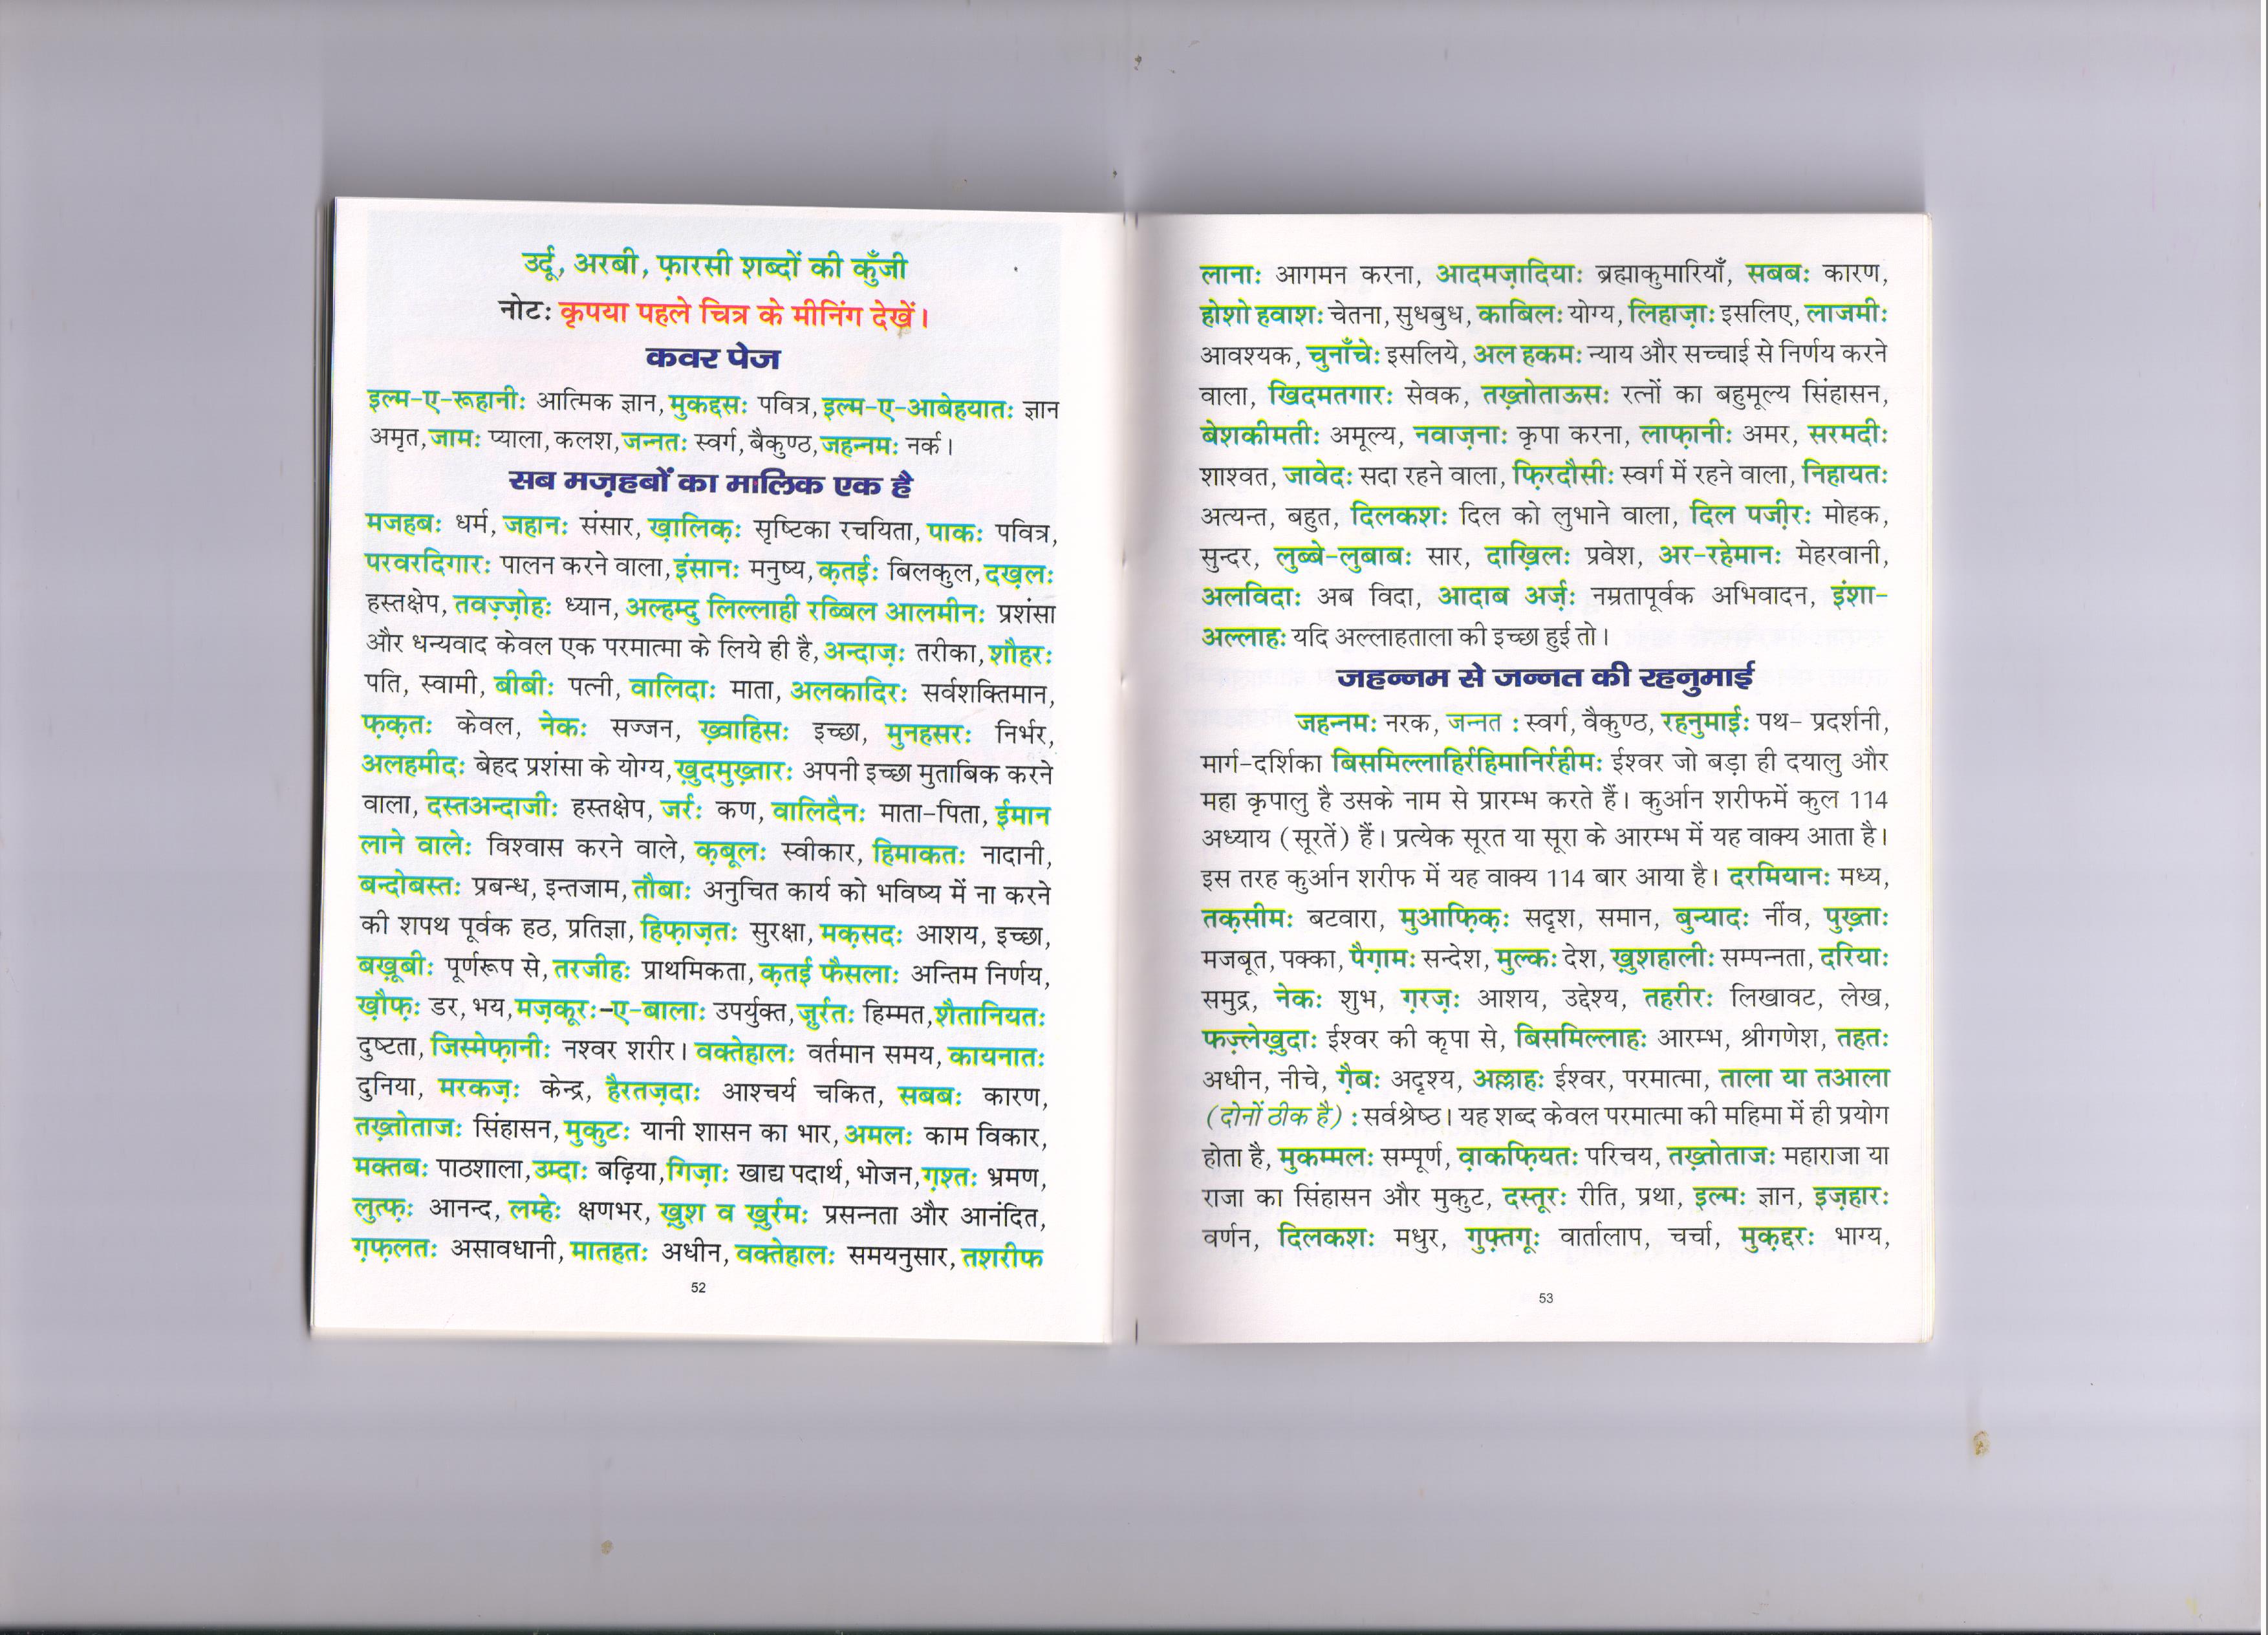 उर्दू, अरबी, फ़ारसी शब्दों की कुँजी
नोटः कृपया पहले चित्र के मीनिंग देखें।
कवर पेज
इल्म-ए-रूहानीः आत्मिक ज्ञान, मुकद्दसः पवित्र, इल्म-ए-आबेहयातः ज्ञान
अमृत, जामः प्याला, कलश, जन्नतः स्वर्ग, बैकुण्ठ, जहन्नमः नर्क।
सब मज़हबों का मालिक एक है
मजहबः धर्म, जहानः संसार, ख़ालिक़ः सृष्टिका रचयिता, पाकः पवित्र,
परवरदिगारः पालन करने वाला, इंसानः मनुष्य, क़तईः बिलकुल, दख़लः
हस्तक्षेप, तवज़्ज़ोहः ध्यान, अल्हम्दु लिल्लाही रब्बिल आलमीनः प्रशंसा
और धन्यवाद केवल एक परमात्मा के लिये ही है, अन्दाज़ः तरीका, शौहरः
पति, स्वामी, बीबीः पत्नी, वालिदाः माता, अलकादिरः सर्वशक्तिमान,
फ़क़तः केवल, नेकः सज्जन, ख़्वाहिसः इच्छा, मुनहसरः निर्भर,
अलहमीदः बेहद प्रशंसा के योग्य, ख़ुदमुख़्तारः अपनी इच्छा मुताबिक करने
वाला, दस्तअन्दाजीः हस्तक्षेप, जर्रः कण, वालिदैनः माता-पिता, ईमान
लाने वालेः विश्वास करने वाले, क़बूलः स्वीकार, हिमाकतः नादानी,
बन्दोबस्तः प्रबन्ध, इन्तजाम, तौबाः अनुचित कार्य को भविष्य में ना करने
की शपथ पूर्वक हठ, प्रतिज्ञा, हिफ़ाज़तः सुरक्षा, मक़सदः आशय, इच्छा,
बख़ूबीः पूर्णरूप से, तरजीहः प्राथमिकता, क़तई फैसलाः अन्तिम निर्णय,
ख़ौफ़ः डर, भय, मज़कूरः-ए-बालाः उपर्युक्त, ज़ुर्रतः हिम्मत, शैतानियतः
दुष्टता, जिस्मेफ़ानीः नश्वर शरीर। वक्तेहालः वर्तमान समय, कायनातः
दुनिया, मरकज़ः केन्द्र, हैरतज़दाः आश्चर्य चकित, सबबः कारण,
तख़्तोताजः सिंहासन, मुकुटः यानी शासन का भार, अमलः काम विकार,
मक्तबः पाठशाला, उम्दाः बढ़िया, गिज़ाः खाद्य पदार्थ, भोजन, ग़श्तः भ्रमण,
लुत्फ़ः आनन्द, लम्हेः क्षणभर, ख़ुश व ख़ुर्रमः प्रसन्नता और आनंदित,
ग़फ़लतः असावधानी, मातहतः अधीन, वक्तेहालः समयनुसार, तशरीफ
52
लानाः आगमन करना, आदमज़ादियाः ब्रह्माकुमारियाँ, सबबः कारण,
होशो हवाशः चेतना, सुधबुध, काबिलः योग्य, लिहाज़ाः इसलिए, लाजमीः
आवश्यक, चुनाँचेः इसलिये, अल हकमः न्याय और सच्चाई से निर्णय करने
वाला, खिदमतगारः सेवक, तख़्तोताऊसः रत्नों का बहुमूल्य सिंहासन,
बेशकीमतीः अमूल्य, नवाज़नाः कृपा करना, लाफ़ानीः अमर, सरमदीः
शाश्वत, जावेदः सदा रहने वाला, फ़िरदौसीः स्वर्ग में रहने वाला, निहायतः
अत्यन्त, बहुत, दिलकशः दिल को लुभाने वाला, दिल पजी़रः मोहक,
सुन्दर, लुब्बे-लुबाबः सार, दाख़िलः प्रवेश, अर-रहेमानः मेहरवानी,
अलविदाः अब विदा, आदाब अर्ज़ः नम्रतापूर्वक अभिवादन, इंशा-
अल्लाहः यदि अल्लाहताला की इच्छा हुई तो।
जहन्नम से जन्नत की रहनुमाई
जहन्नमः नरक, जन्नत : स्वर्ग, वैकुण्ठ, रहनुमाईः पथ- प्रदर्शनी,
मार्ग-दर्शिका बिसमिल्लाहिर्रहिमानिर्रहीमः ईश्वर जो बड़ा ही दयालु और
महा कृपालु है उसके नाम से प्रारम्भ करते हैं। कुर्आन शरीफमें कुल 114
अध्याय (सूरतें) हैं। प्रत्येक सूरत या सूरा के आरम्भ में यह वाक्य आता है।
इस तरह कुर्आन शरीफ में यह वाक्य 114 बार आया है। दरमियानः मध्य,
तक़सीमः बटवारा, मुआफ़िक़ः सदृश, समान, बुन्यादः नींव, पुख़्ताः
मजबूत, पक्का, पैग़ामः सन्देश, मुल्कः देश, ख़ुशहालीः सम्पन्नता, दरियाः
समुद्र, नेकः शुभ, ग़रज़ः आशय, उद्देश्य, तहरीरः लिखावट, लेख,
फज़्लेख़ुदाः ईश्वर की कृपा से, बिसमिल्लाहः आरम्भ, श्रीगणेश, तहतः
अधीन, नीचे, ग़ैबः अदृश्य, अल्लाहः ईश्वर, परमात्मा, ताला या तआला
(दोनों ठीक है) : सर्वश्रेष्ठ। यह शब्द केवल परमात्मा की महिमा में ही प्रयोग
होता है, मुकम्मलः सम्पूर्ण, वा़कफ़ियतः परिचय, तख़्तोताजः महाराजा या
राजा का सिंहासन और मुकुट, दस्तूरः रीति, प्रथा, इल्मः ज्ञान, इज़हारः
वर्णन, दिलकशः मधुर, गुफ़्तगूः वार्तालाप, चर्चा, मुक़द्दरः भाग्य,
53